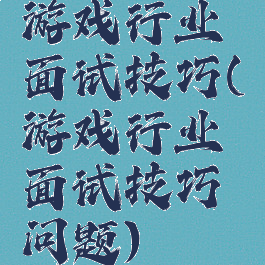 游戏行业
面试技巧(
游戏行业
面试技巧
问题)